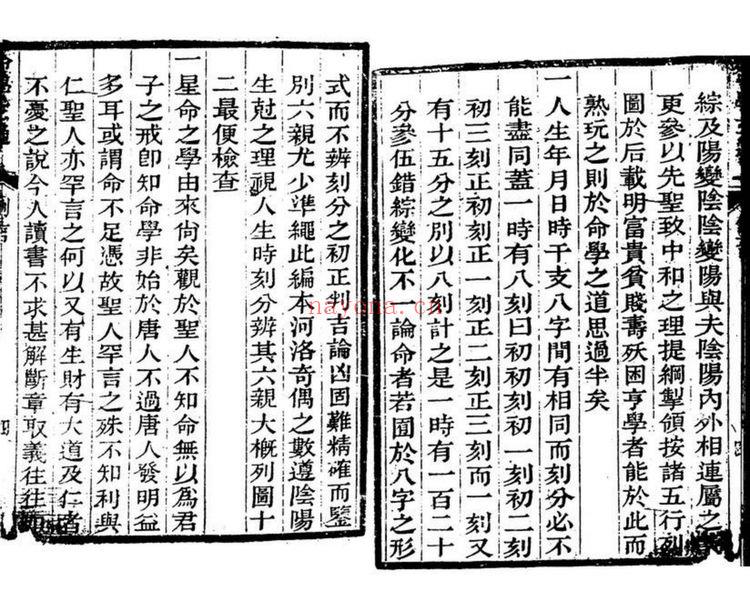 綜及陽變陰陰變陽與夫陰陽內外相連屬之
更參以先聖致中和之理提綱掣領按諸五行列
圖於后載明富貴貧賤壽殀困亨學者能於此而
熟玩之則於命學之道思過半矣
一人生年月日時干支八字間有相同而刻分必不
能盡同蓋一時有八刻曰初初刻初一刻初二刻
初三刻正初刻正一刻正二刻正三刻而一刻又
有十五分之別以八刻計之是一時有一百二十
分參伍錯綜變化不 論命者若囿於八字之形
式而不辨刻分之初正判吉論凶固難精確而鑒
別六親尤少準繩此編本河洛奇偶之數遵陰陽
生尅之理視人生時刻分辨其六親大槪列圖十
二最便檢查
一星命之學由來尙矣觀於聖人不知命無以爲君
子之戒卽知命學非始於唐人不過唐人發明益
多耳或謂命不足憑故聖人罕言之殊不知利與
仁聖人亦罕言之何以又有生財有大道及仁者
不憂之說今人讀書不求甚解斷章取義往往
四
nayona.cn